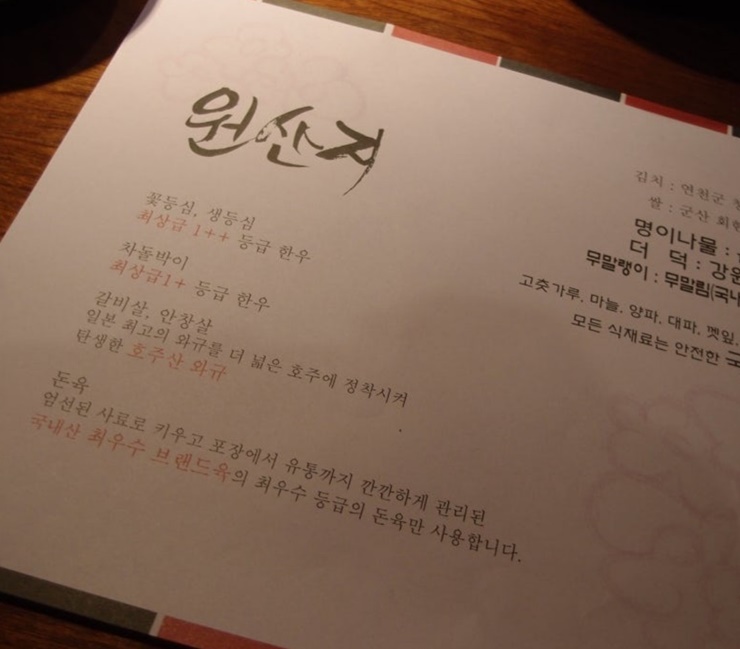 원산지
꽃등심, 생등심
최상급 1++ 등급 한우
차돌박이
최상급1+ 등급 한우
갈비살, 안창살
일본 최고의 와규를 더 넓은 호주에 정착시켜
탄생한 호주산 와규
돈육
엄선된 사료로 키우고 포장에서 유통까지 깐깐하게 관리된
국내산 최우수 브랜드육의 최우수 등급의 돈육만 사용합니다.
김치 : 연천군
쌀 : 군산 회현
명이나물 :
더 덕 : 강원
무말랭이 : 무말림(국내
고춧가루, 마늘, 양파, 대파, 깻잎,
모든 식재료는 안전한 국